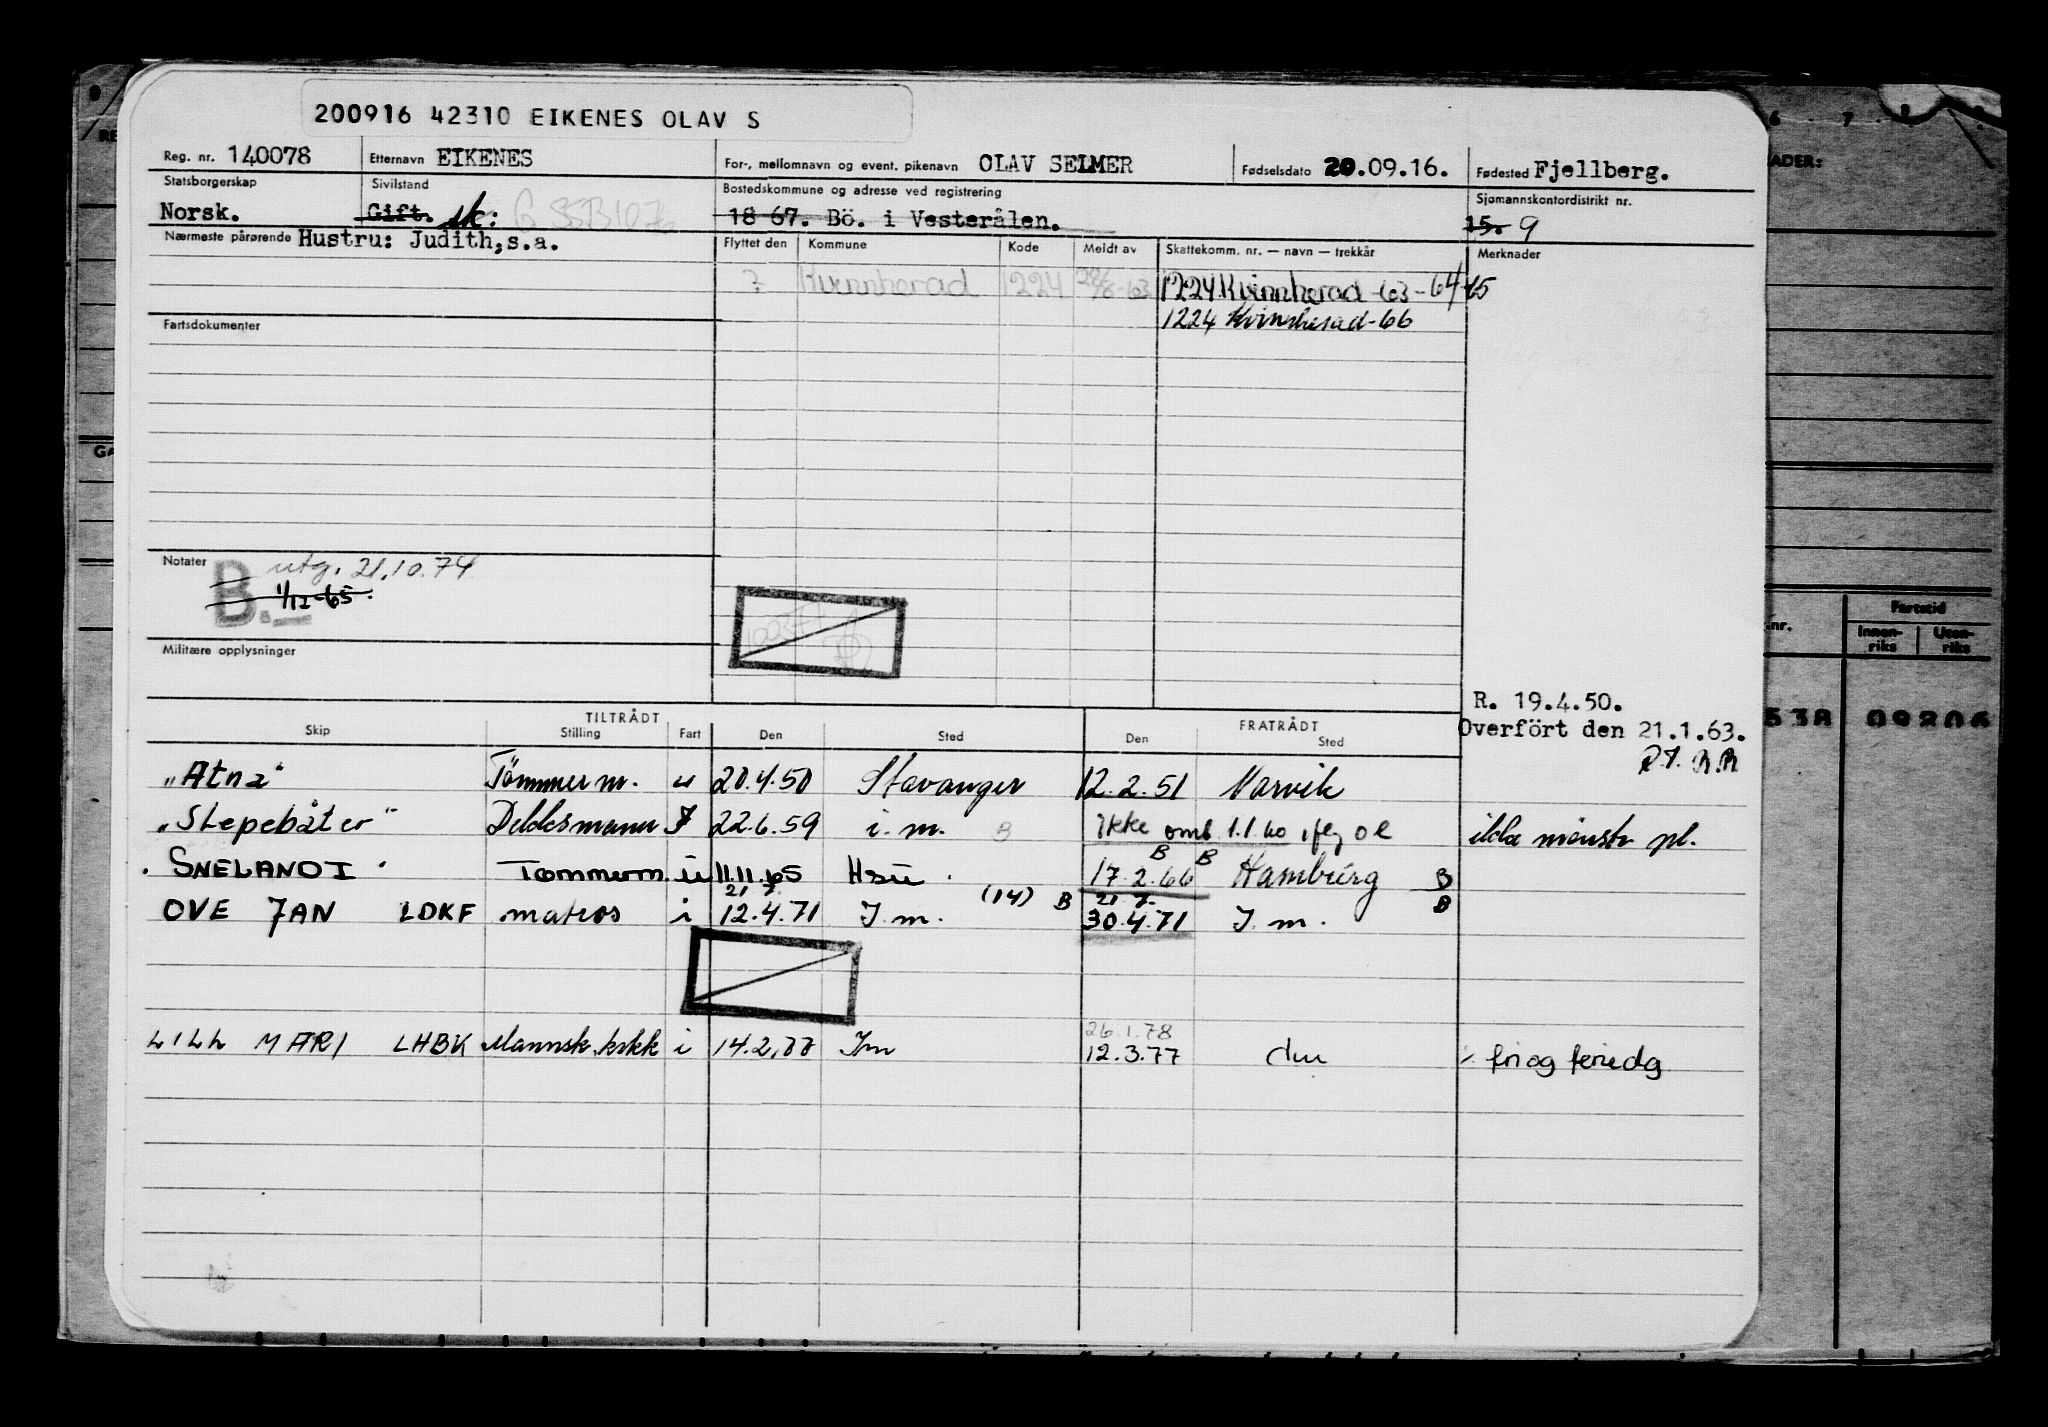 200916 42310 EIKENES OLAV S
Reg. nr. 140078 Etternavn EIKENES For-, mellomnavn og event. pikenavn OLAV SELMER Fødselsdato 20.09.16. Fødested Fjellberg.
Statsborgerskap Sivilstand Bostedskommune og adresse ved registrering Sjømannskontordistrikt nr.
Norsk. Gift. 18 67. Bö. i Vesterålen. 15. 9
Nærmeste pårørende Hustru: Judith, s.a. Flyttet den Kommune Kode Meldt av Skattekomm. nr. — navn — trekkår Merknader
7 Kvinnherad 1224 1224 Kvinnherad -63-64-65
Fartsdokumenter 1224 Kvinnherad-66
Notater B. utg. 21.10.74
1/12-65.
Militære opplysninger
R. 19.4.50.
Overfört den 21.1.63.
TILTRÅDT FRATRÅDT
Skip Stilling Fart Den Sted Den Sted
"Atna" Tömmerm. u 20.4.50 Stavanger 12.2.51 Narvik
"Slepebåter" Dekksmann I 22.6.59 i.m. B ikke omb 1.1.60
B B
SNELAND I Tømmerm. u 11.11.65 Hsu 17.2.66 Hamburg B
21 7. (14) B 21 7. B
OVE JAN LDKF matros i 12.4.71 I.m. 30.4.71 I.m.
26.1.78
LILL MARI LHBK Mannsk.kokk i 14.2.77 Im 12.3.77 du fri og feriedg
RE
GA
6 7 8 9
ADER:
Fartstid
nr. Innenriks Utenriks
538 09206